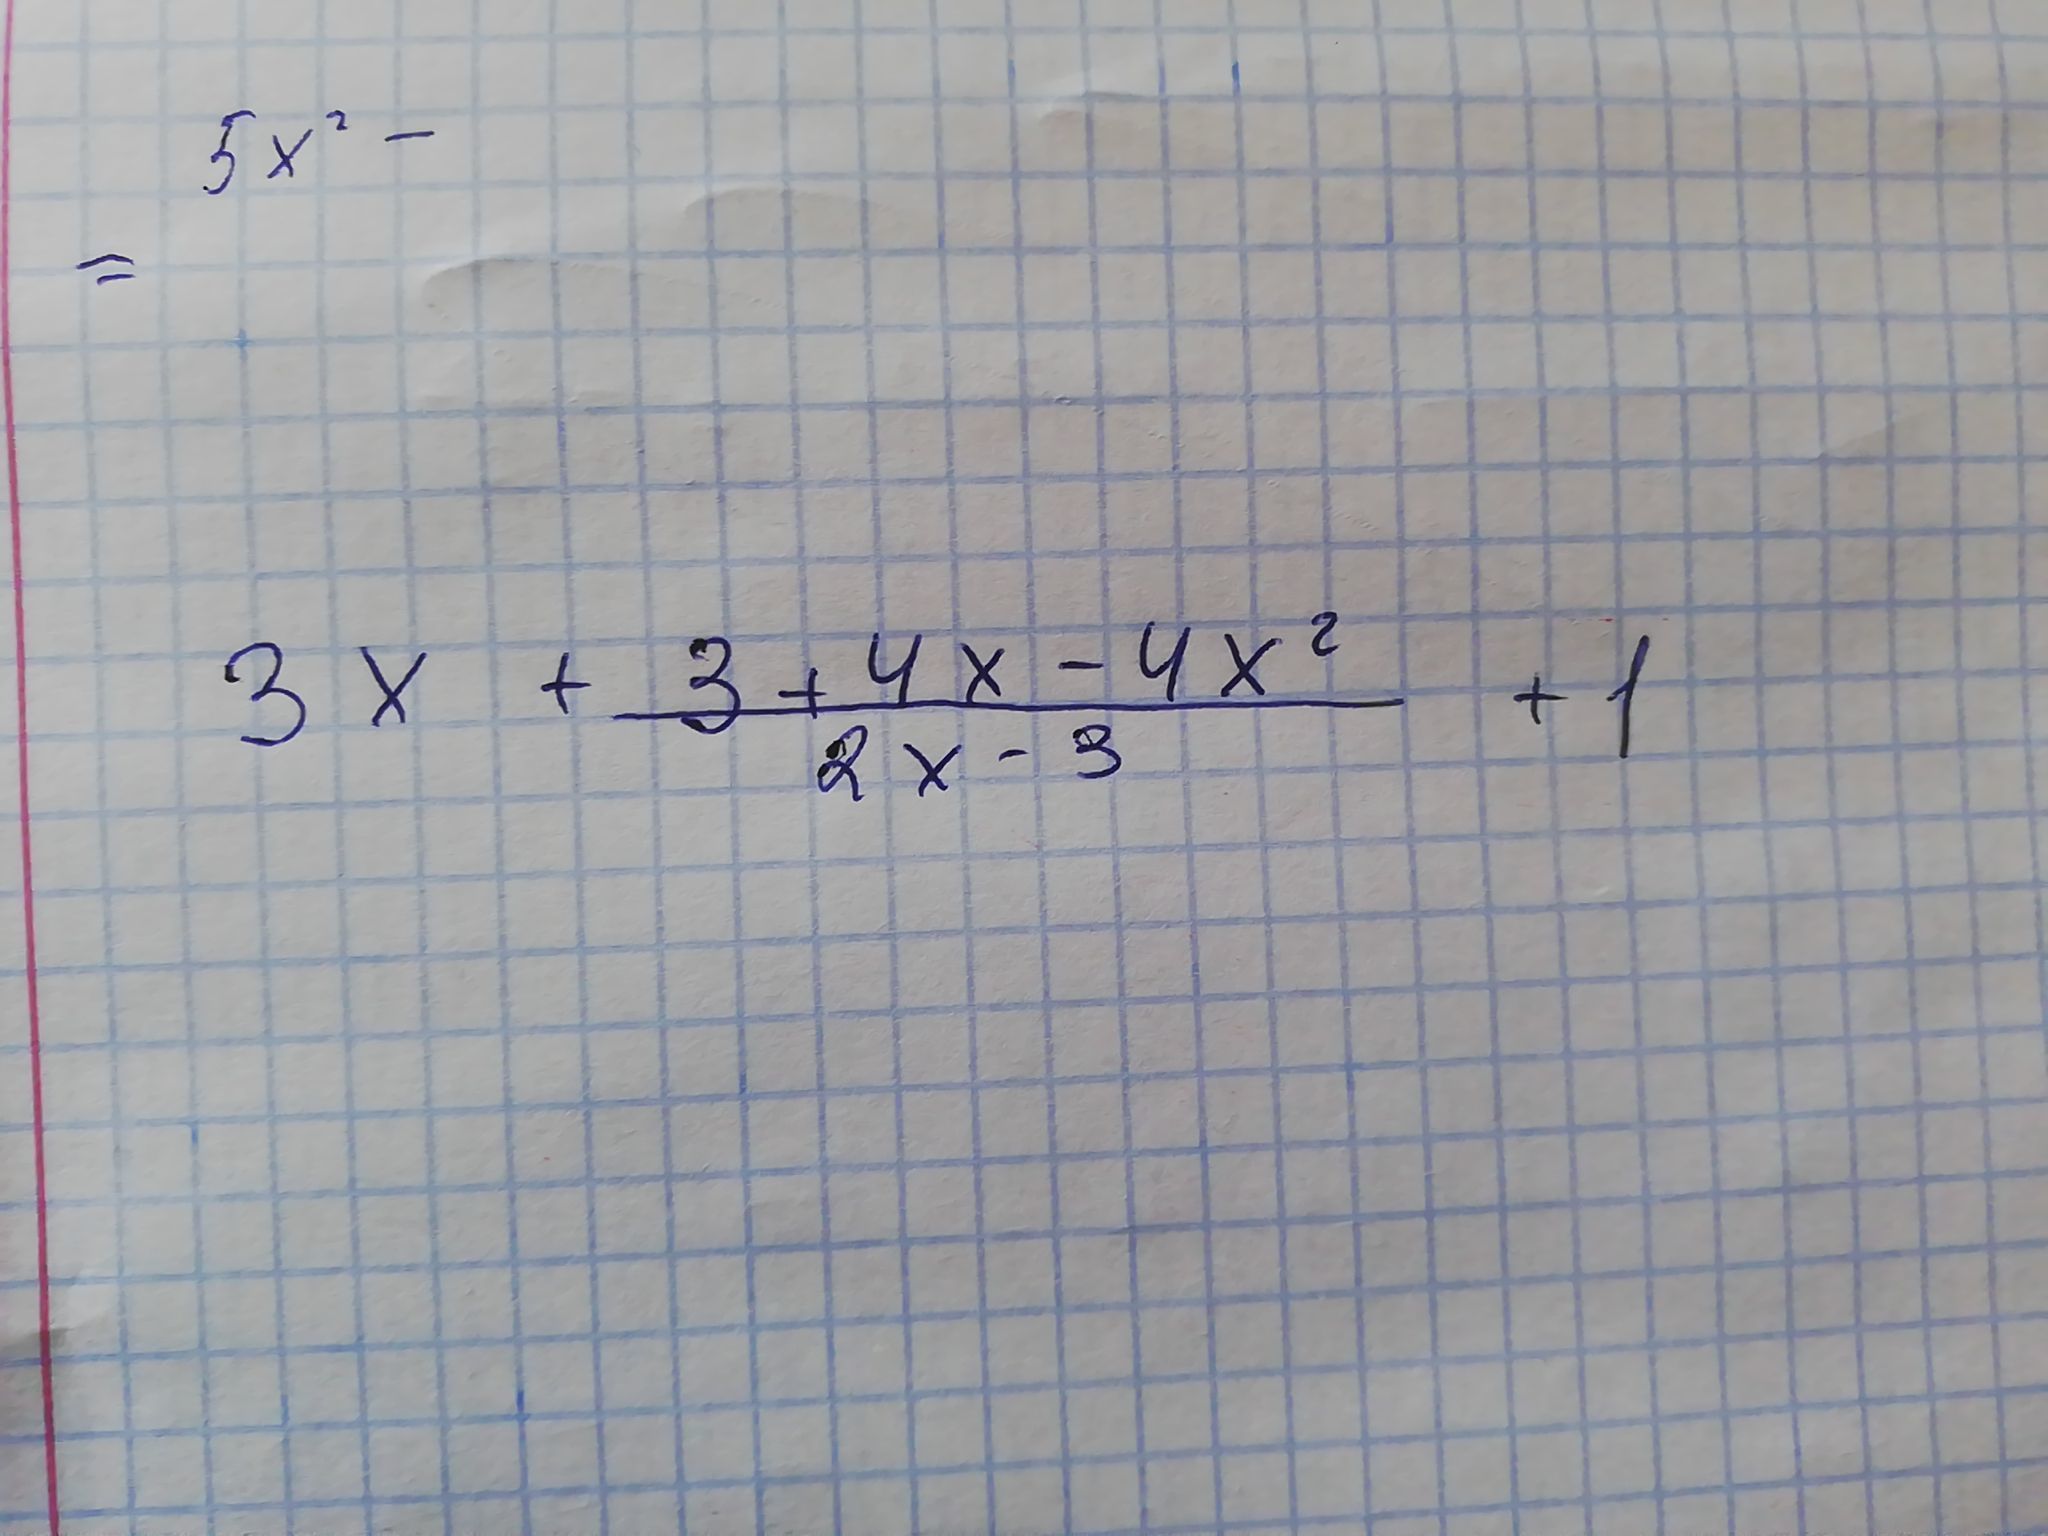 5x² -
=
3x + (3 + 4x - 4x²)/(2x - 3) + 1